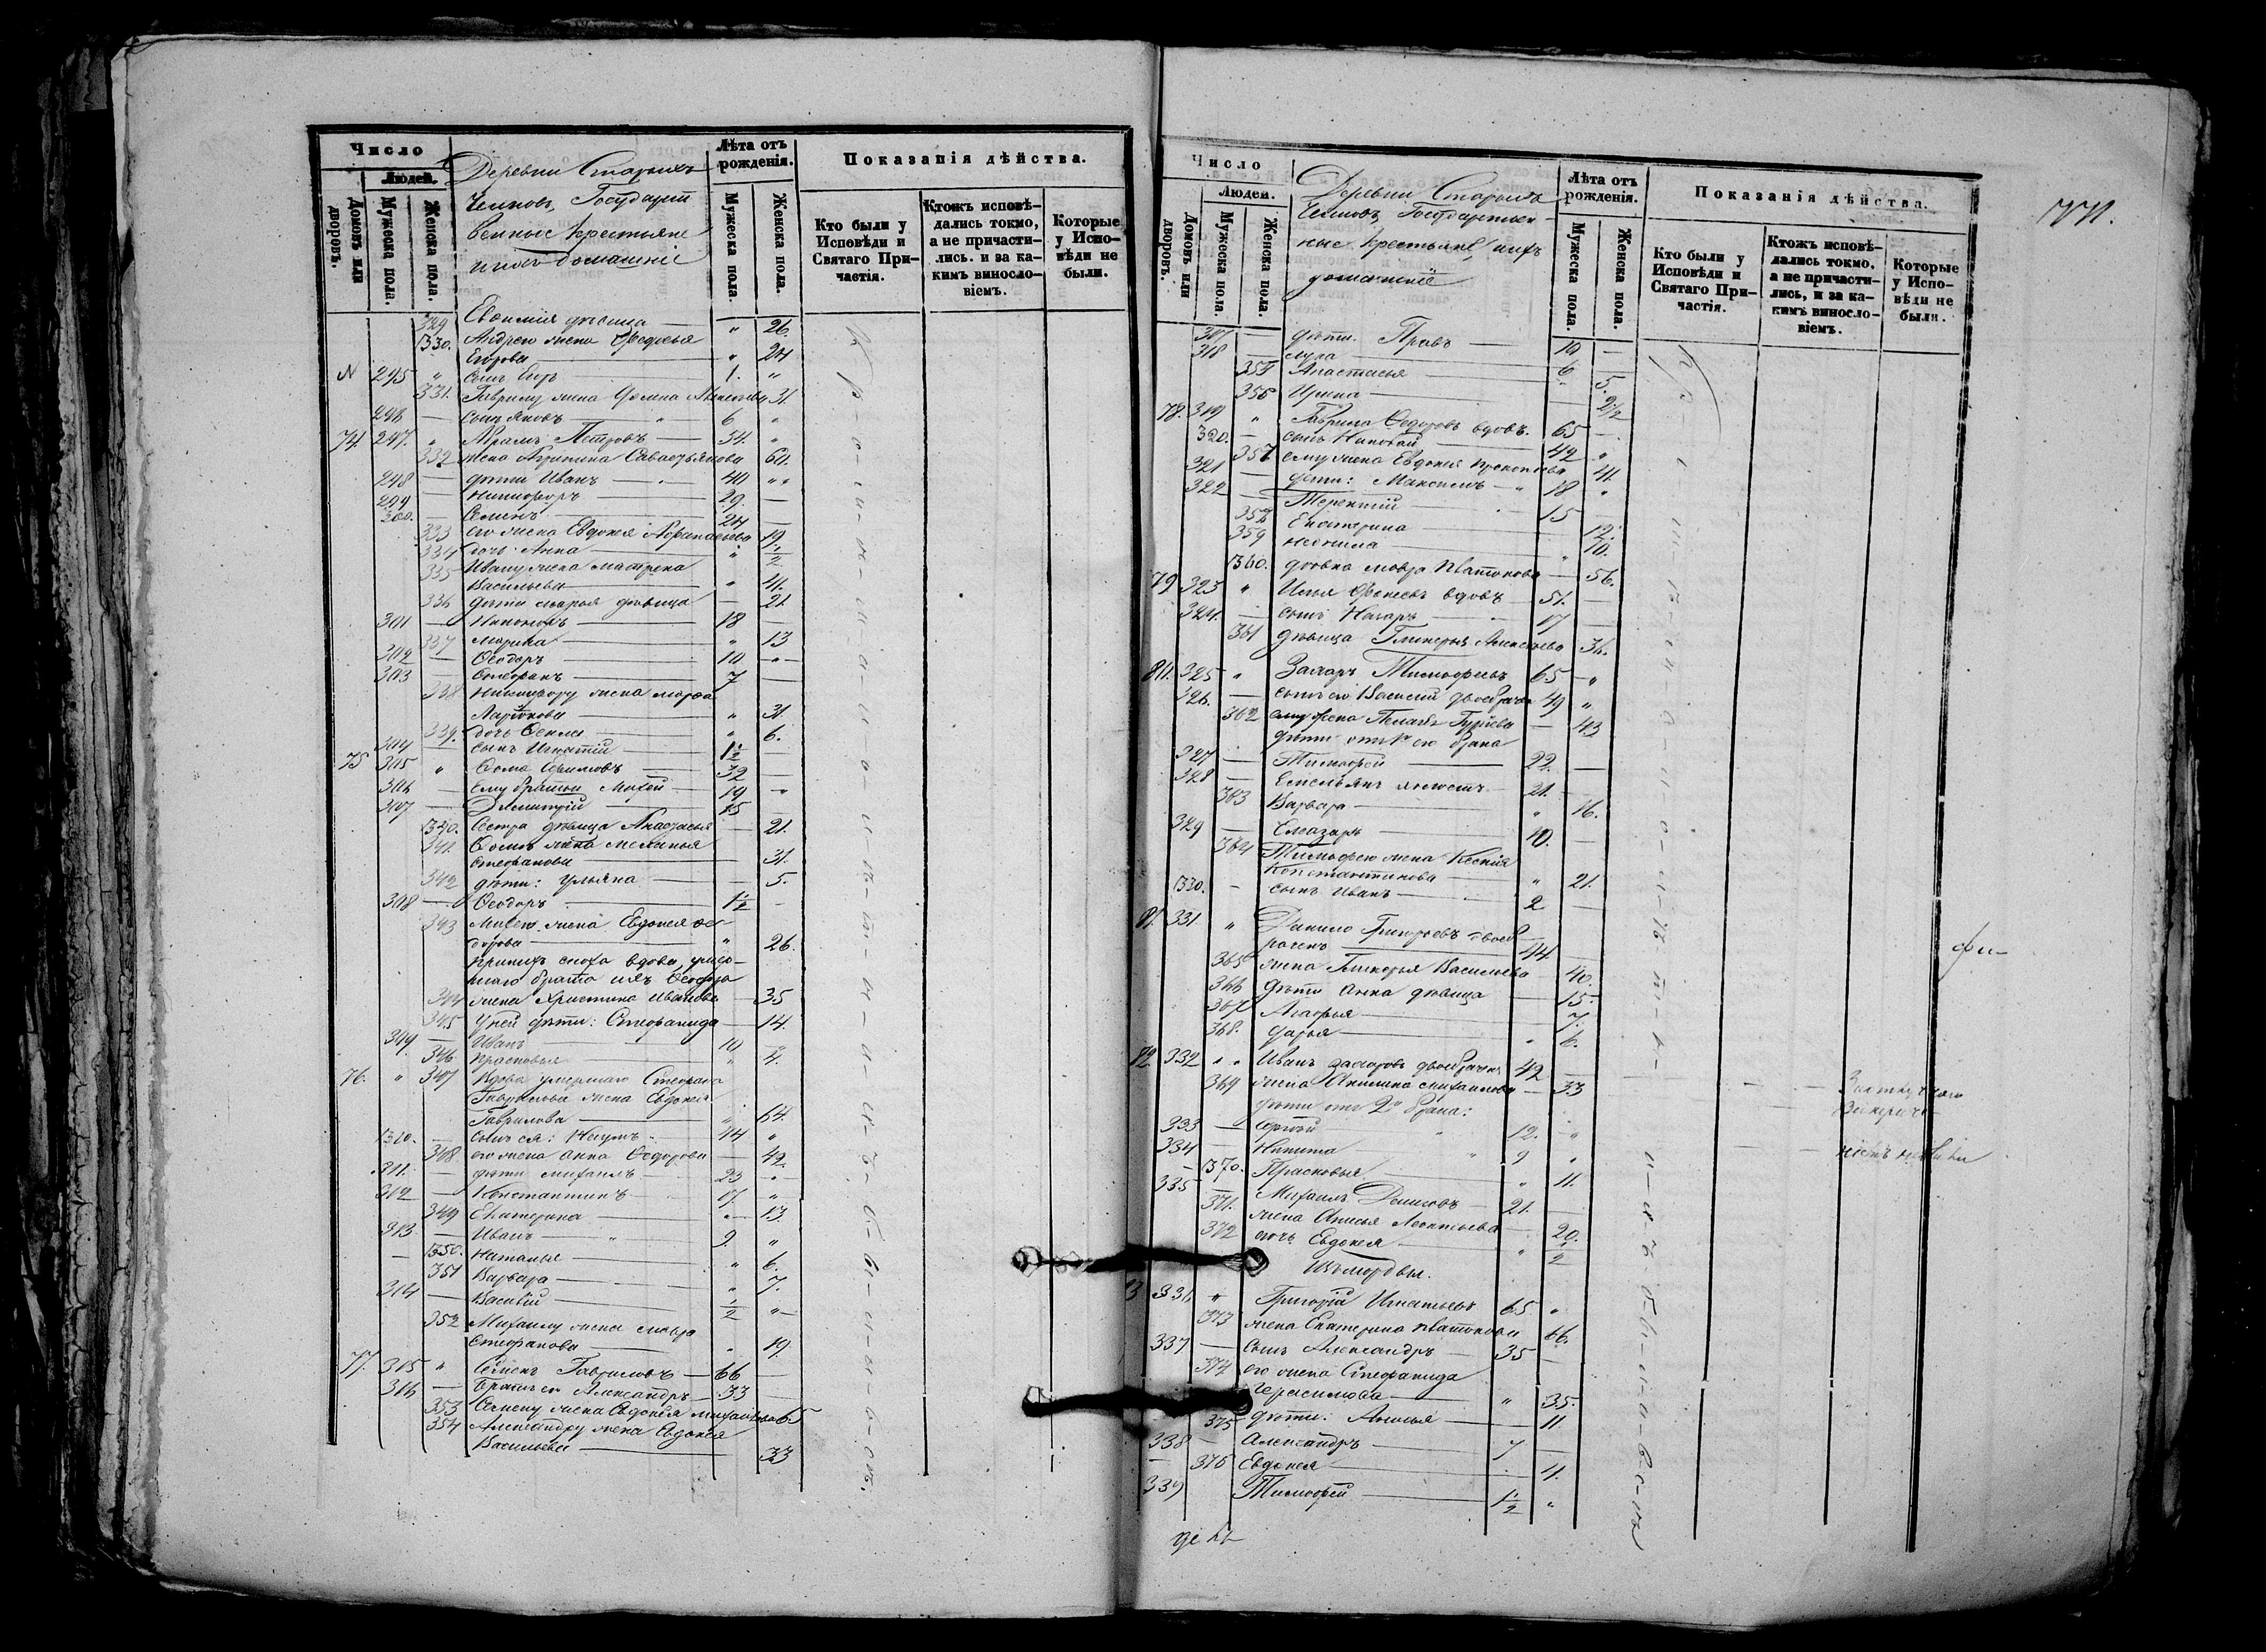 Число
Людей.
Домовъ или дворовъ.
Мужеска пола.
Женска пола.
Деревни Старыхъ
Чемновъ, Государст
венные крестьяне
и ихъ домашніе
Лѣта отъ рожденія.
Мужеска пола.
Женска пола.
Показанія дѣйства.
Кто были у Исповѣди и Святаго Причастія.
Ктожъ исповѣдались токмо, а не причастились. и за какимъ винословіемъ.
Которые у Исповѣди не были.
329 Евфимія дѣвица — " 26
330. Андрею жена
Егорова — " 24
295 " сынъ Егор — 1. "
331. Гаврилу жена 31.
296 — сынъ Яковъ — 6 "
74 297. " Абрамъ Петровъ — 54. "
332 жена Савастьянова 60.
298 — дѣти Иванъ — 40 "
299 — Никифоръ — 29. —
300. — Семенъ — 24 —
333 его жена Евдокея Афанасьева 19.
334 дочь Анна — " 1/2
335 Ивану жена Матрена
Васильева — " 41.
336 дѣти Марья дѣвица — 21
301 — — 18 —
337 Марина — " 13
302 — Ѳеодоръ — 10 —
303 — Стефанъ — 7 —
338. Никифору жена Марѳа
Ларіонова — " 31.
339. дочь — " 6.
304 — сынъ Игнатій — 1 1/2
75 305 " Ѳома Ефимовъ — 32 —
306 — ему братья Михей — 19 —
307 — Димитрій — 15
340. Сестра дѣвица Анастасья — 21.
341. Ѳомы жена Меланья
Стефанова — 31.
342 дѣти: Ульяна — 5.
308 — Ѳеодоръ — 1 1/2 —
343 Михею жена Евдокея Ѳе
дорова — " 26.
при нихъ сноха вдова, умер
шаго брата ихъ
344 жена Христина Иванова — 35
345 у ней дѣти: Стефанида — 14.
309 — Иванъ — 10 —
346 Прасковья — " 4.
76. " 347 Вдова умершаго Стефана
Гаврилова жена Евдокея
Гаврилова — " 64.
310. — сынъ ея: Наумъ — 44 "
348 его жена Анна Ѳедорова — 42
311. — дѣти Михаилъ — 23 —
312 — Константинъ — 17. "
349 Екатерина — 13.
313 — Иванъ — 9. "
350. Наталья — " 6.
351 Варвара — " 7.
314 — Василій — 1/2 "
352 Михаилу жена Мавра
Стефанова — " 19.
77. 315 " Семенъ Гавриловъ — 66 —
316 — Братъ его Александръ — 33 —
353 Семену жена Евдокея Михайлова 65
354 Александру жена Евдокея
Васильева — 33
Число
Людей.
Домовъ или дворовъ.
Мужеска пола.
Женска пола.
Деревни Старыхъ
Чемновъ, Государствен
ные крестьяне, и ихъ
домашніе
Лѣта отъ рожденія.
Мужеска пола.
Женска пола.
Показанія дѣйства.
Кто были у Исповѣди и Святаго Причастія.
Ктожъ исповѣдались токмо. а не причастились, и за какимъ винословіемъ.
Которые у Исповѣди не были.
771.
317 — дѣти. — 10 —
318 — Лука — 6 —
355 Анастасья — 5.
356 Ирина — 2 1/2
78. 319 " Гаврила Ѳедоровъ вдовъ. 65 —
320. — сынъ Николай — 42 "
357 ему жена Евдокея Прокопьева 41.
321 — дѣти: Максимъ — 18 "
322 — Терентій — 15
358 Екатерина — 12.
359 — 10.
360. Мавра Платонова — 56.
79 323 " Илья вдовъ — 51. —
324. — сынъ Назаръ — 17 —
361 дѣвица Гликерья Алексѣева 36.
80. 325 " Захаръ Тимофеевъ 65 — "
326. — сынъ его Василій двоебрачн 49 "
362 ему жена Гурьева — 43
дѣти отъ 1го его брака
327 — Тимофей — 22. —
328 — Емельянъ холостъ — 21. —
363 Варвара — " 16.
329 — Елеазаръ — 10. —
364 Тимофею жена Ксенія
Константинова — " 21.
330. — сынъ Иванъ — 2 —
81. 331 " Данило Григорьевъ двоеб
раченъ — 44 —
365 жена Гликерья Васильева — 40.
366 дѣти Анна дѣвица — 15.
367 Агафья — 7.
368. Дарья — " 6.
82. 332 " " Иванъ Захаровъ двоебрачн 42 —
369 жена Акилина Михаилова — 33
дѣти отъ 2го брака:
333 — Сергѣй " 12. — "
334 — Никита " 9 "
370. Прасковья — " 11.
335 — Михаилъ Денисовъ — 21. —
371. жена Анисья Леонтьева — 20.
372 дочь Евдокея — " 1/2
Изъ мордвы.
83 336 " Григорій Игнатьевъ 65 "
373 жена Екатерина Платонова 66.
337 — сынъ Александръ — 35 —
374 его жена Стефанида
Герасимова — " 35.
375 дѣти: Анисья — 11.
338 — Александръ — 7 —
376 Евдокея — 4.
339 Тимофей — 1 1/2 "